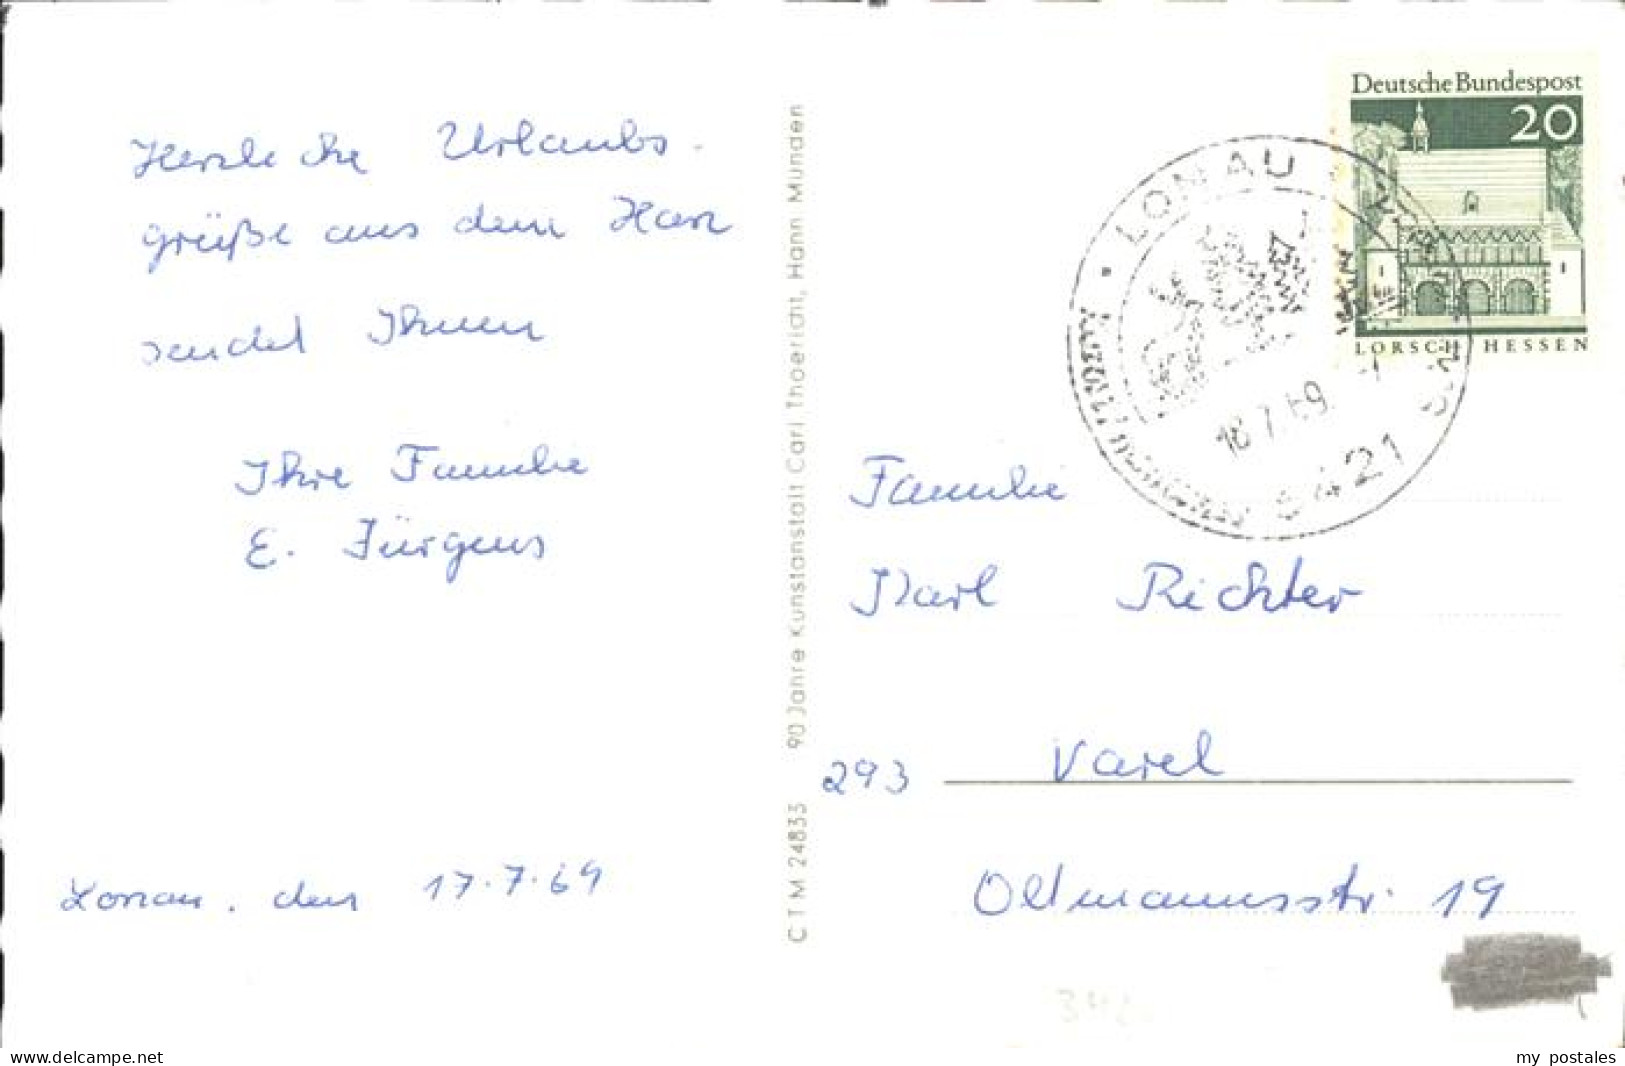 Herzliche Urlaubs-
grüße aus dem Harz
sendet Ihnen
Ihre Familie
E. Jürgens
Lonau, den 17.7.69
C T M 24833 90 Jahre Kunstanstalt Carl Thoericht, Hann Münden
Deutsche Bundespost
20
LORSCH HESSEN
LONAU
18.7.69
3421
Familie
Karl Richter
293 Varel
Oltmannsstr. 19
www.delcampe.net
my postales